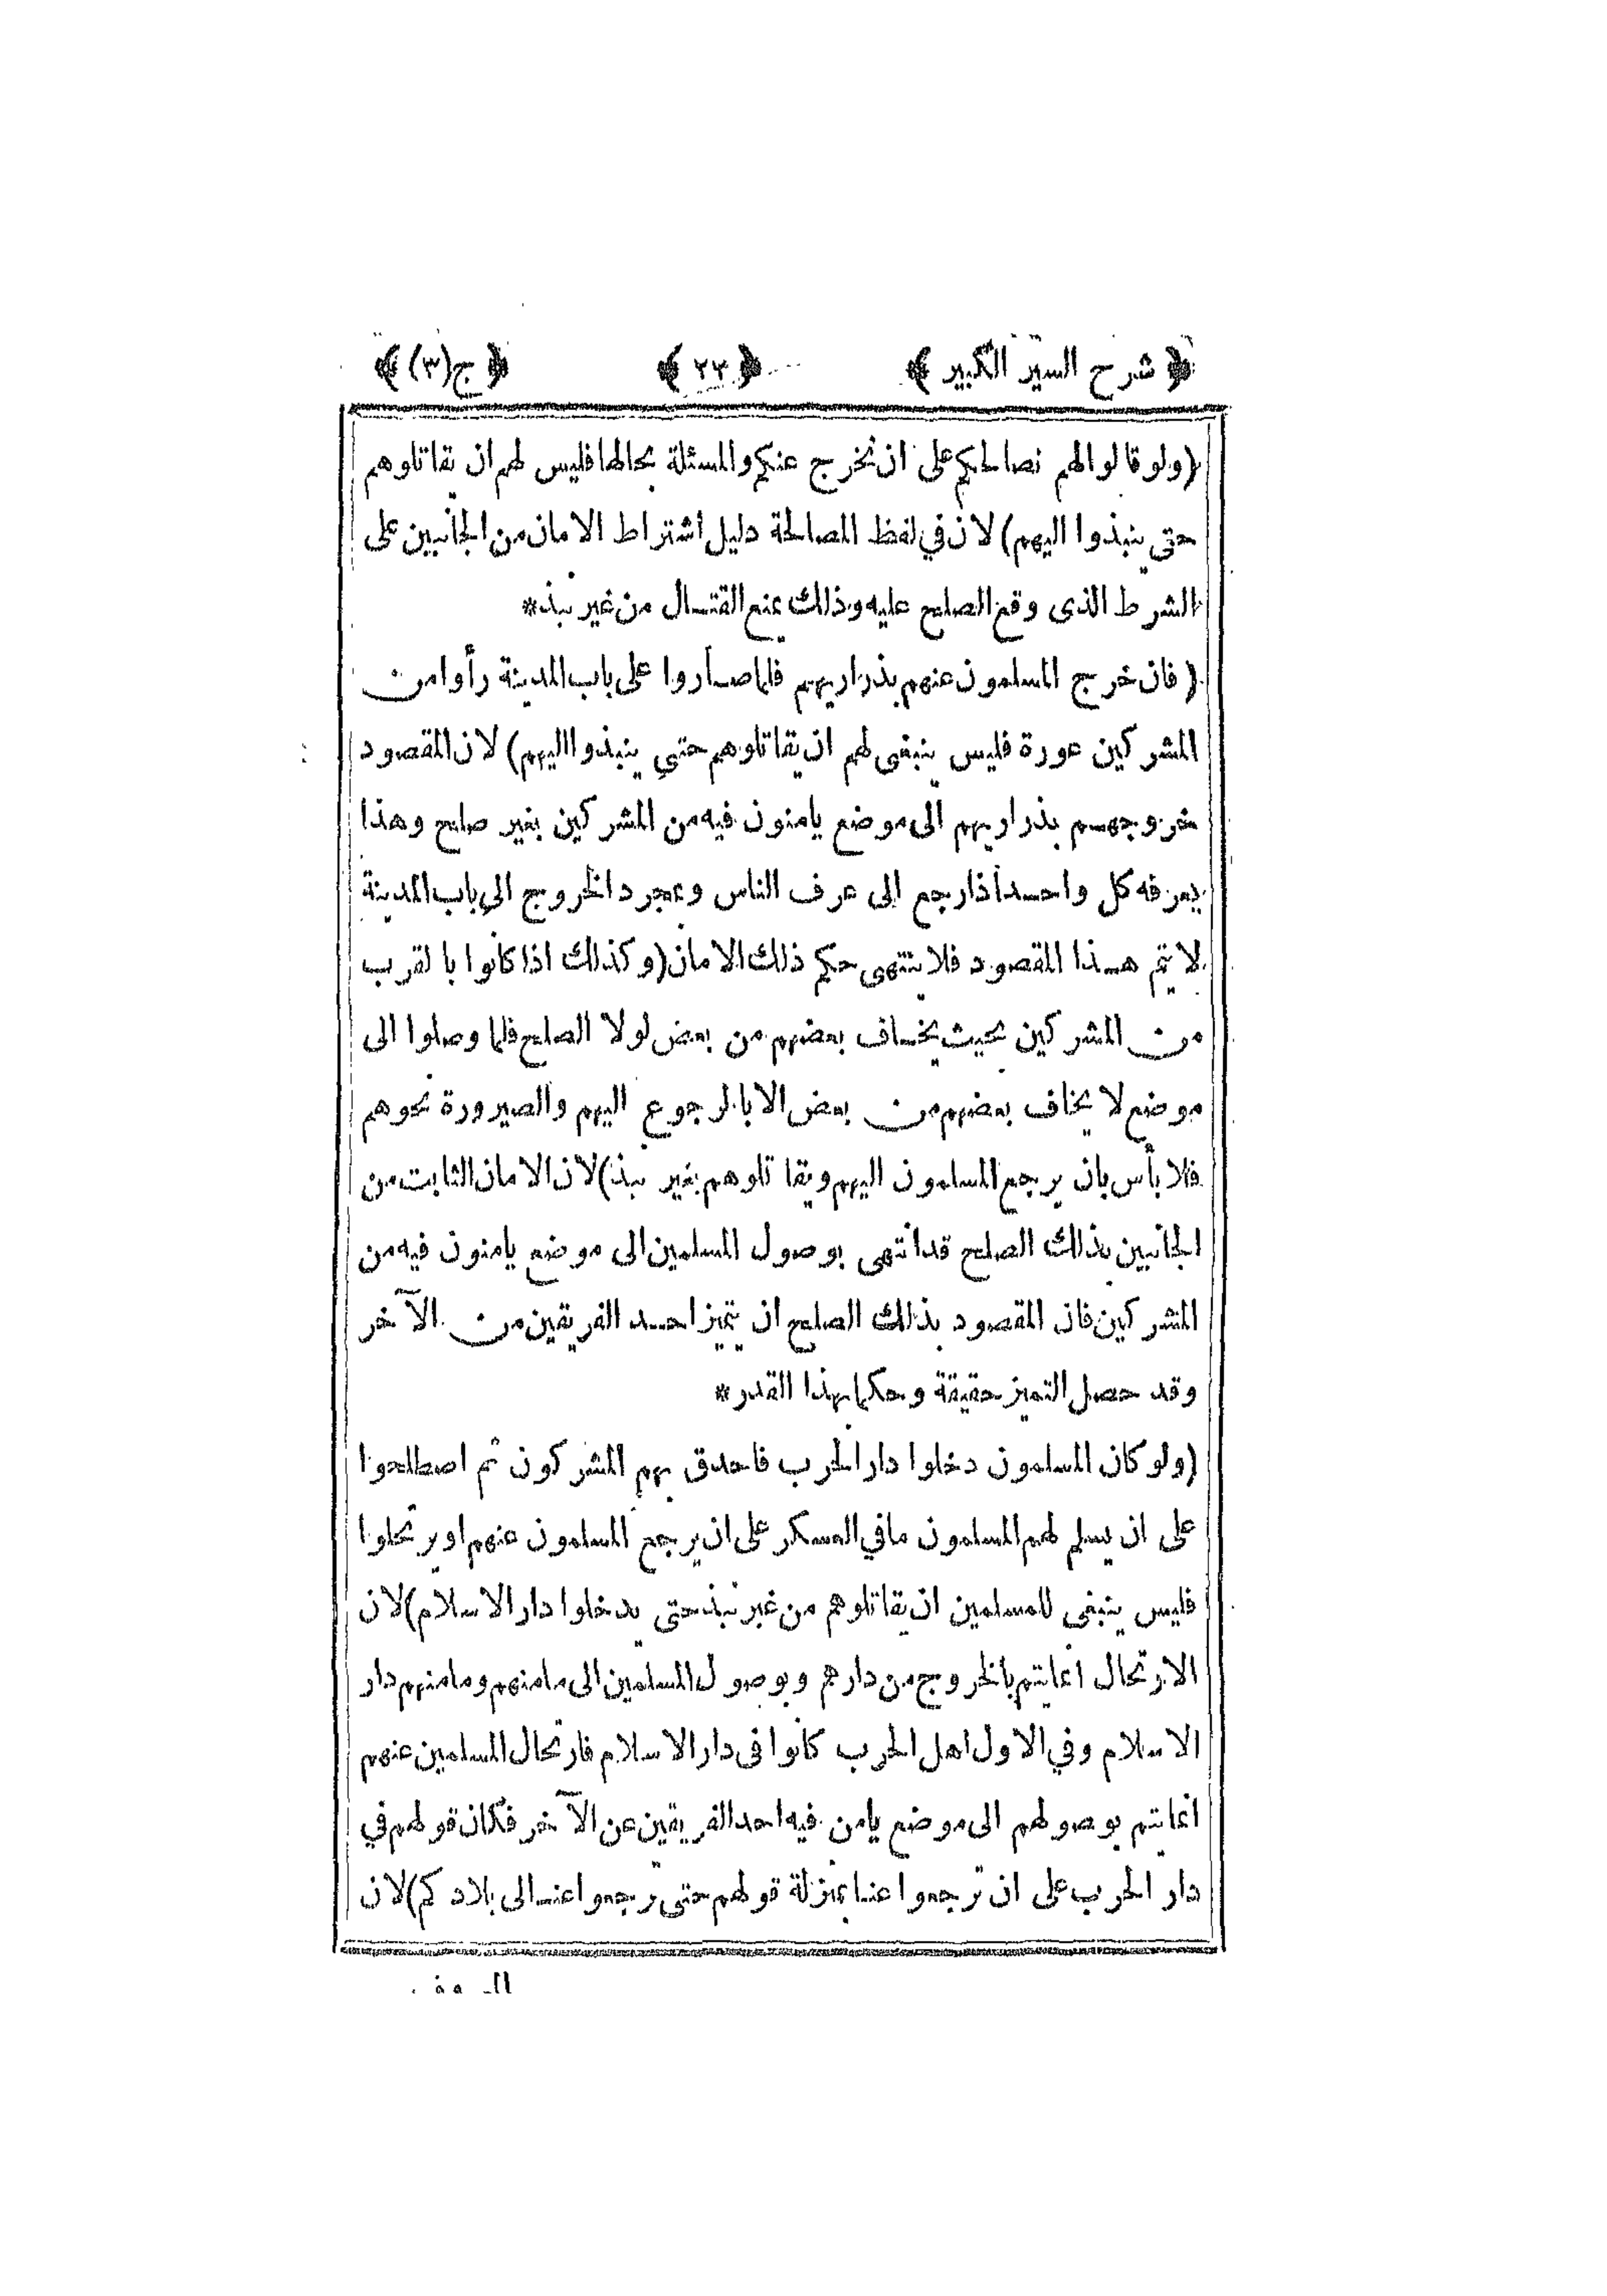 ﴿ شرح السير الكبير ﴾ ﴿ ٢٣ ﴾ ﴿ ج(٣) ﴾
(ولو قالوا لهم نصالحكم على ان نخرج عنكم والمسئلة بحالها فليس لهم ان يقاتلوهم
حتى ينبذوا اليهم) لان في لفظ المصالحة دليل اشتراط الامان من الجانبين على
الشرط الذى وقع الصلح عليه وذلك يمنع القتال من غير نبذ*
(فان خرج المسلمون عنهم بذراريهم فلما صاروا على باب المدينة رأوا من
المشركين عورة فليس ينبغى لهم ان يقاتلوهم حتى ينبذوا اليهم) لان المقصود
خروجهم بذراريهم الى موضع يامنون فيه من المشركين بغير صلح وهذا
يعرفه كل واحد اذا رجع الى عرف الناس وبمجرد الخروج الى باب المدينة
لا يتم هذا المقصود فلا ينتهى حكم ذلك الامان (وكذلك اذا كانوا بالقرب
من المشركين بحيث يخاف بعضهم من بعض لولا الصلح فلما وصلوا الى
موضع لا يخاف بعضهم من بعض الا بالرجوع اليهم والصيرورة نحوهم
فلا بأس بان يرجع المسلمون اليهم ويقاتلوهم بغير نبذ) لان الامان الثابت من
الجانبين بذلك الصلح قد انتهى بوصول المسلمين الى موضع يامنون فيه من
المشركين فان المقصود بذلك الصلح ان يتميز احد الفريقين من الآخر
وقد حصل التميز حقيقة وحكما بهذا القدر*
(ولو كان المسلمون دخلوا دار الحرب فاحدق بهم المشركون ثم اصطلحوا
على ان يسلم لهم المسلمون ما في العسكر على ان يرجع المسلمون عنهم او يرتحلوا
فليس ينبغى للمسلمين ان يقاتلوهم من غير نبذ حتى يدخلوا دار الاسلام) لان
الارتحال انما يتم بالخروج من دارهم وبوصول المسلمين الى مامنهم ومامنهم دار
الاسلام وفي الاول اهل الحرب كانوا فى دار الاسلام فارتحال المسلمين عنهم
انما يتم بوصولهم الى موضع يامن فيه احد الفريقين عن الآخر فكان قولهم في
دار الحرب على ان ترجعوا عنا بمنزلة قولهم حتى ترجعوا عنا الى بلادكم) لان